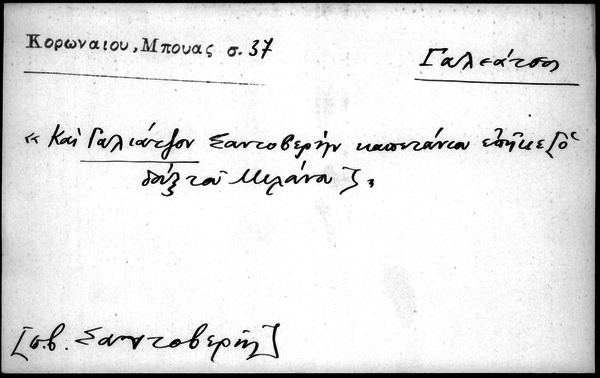 Κορωναιου, Μπουας σ. 37
Γαλεάτσος
« Καὶ Γαλιάτζον Σαντοβερὴν καπετάνιον
δοὺξ τοῦ Μιλάνου
[σ.β. Σαντοβερὴς]